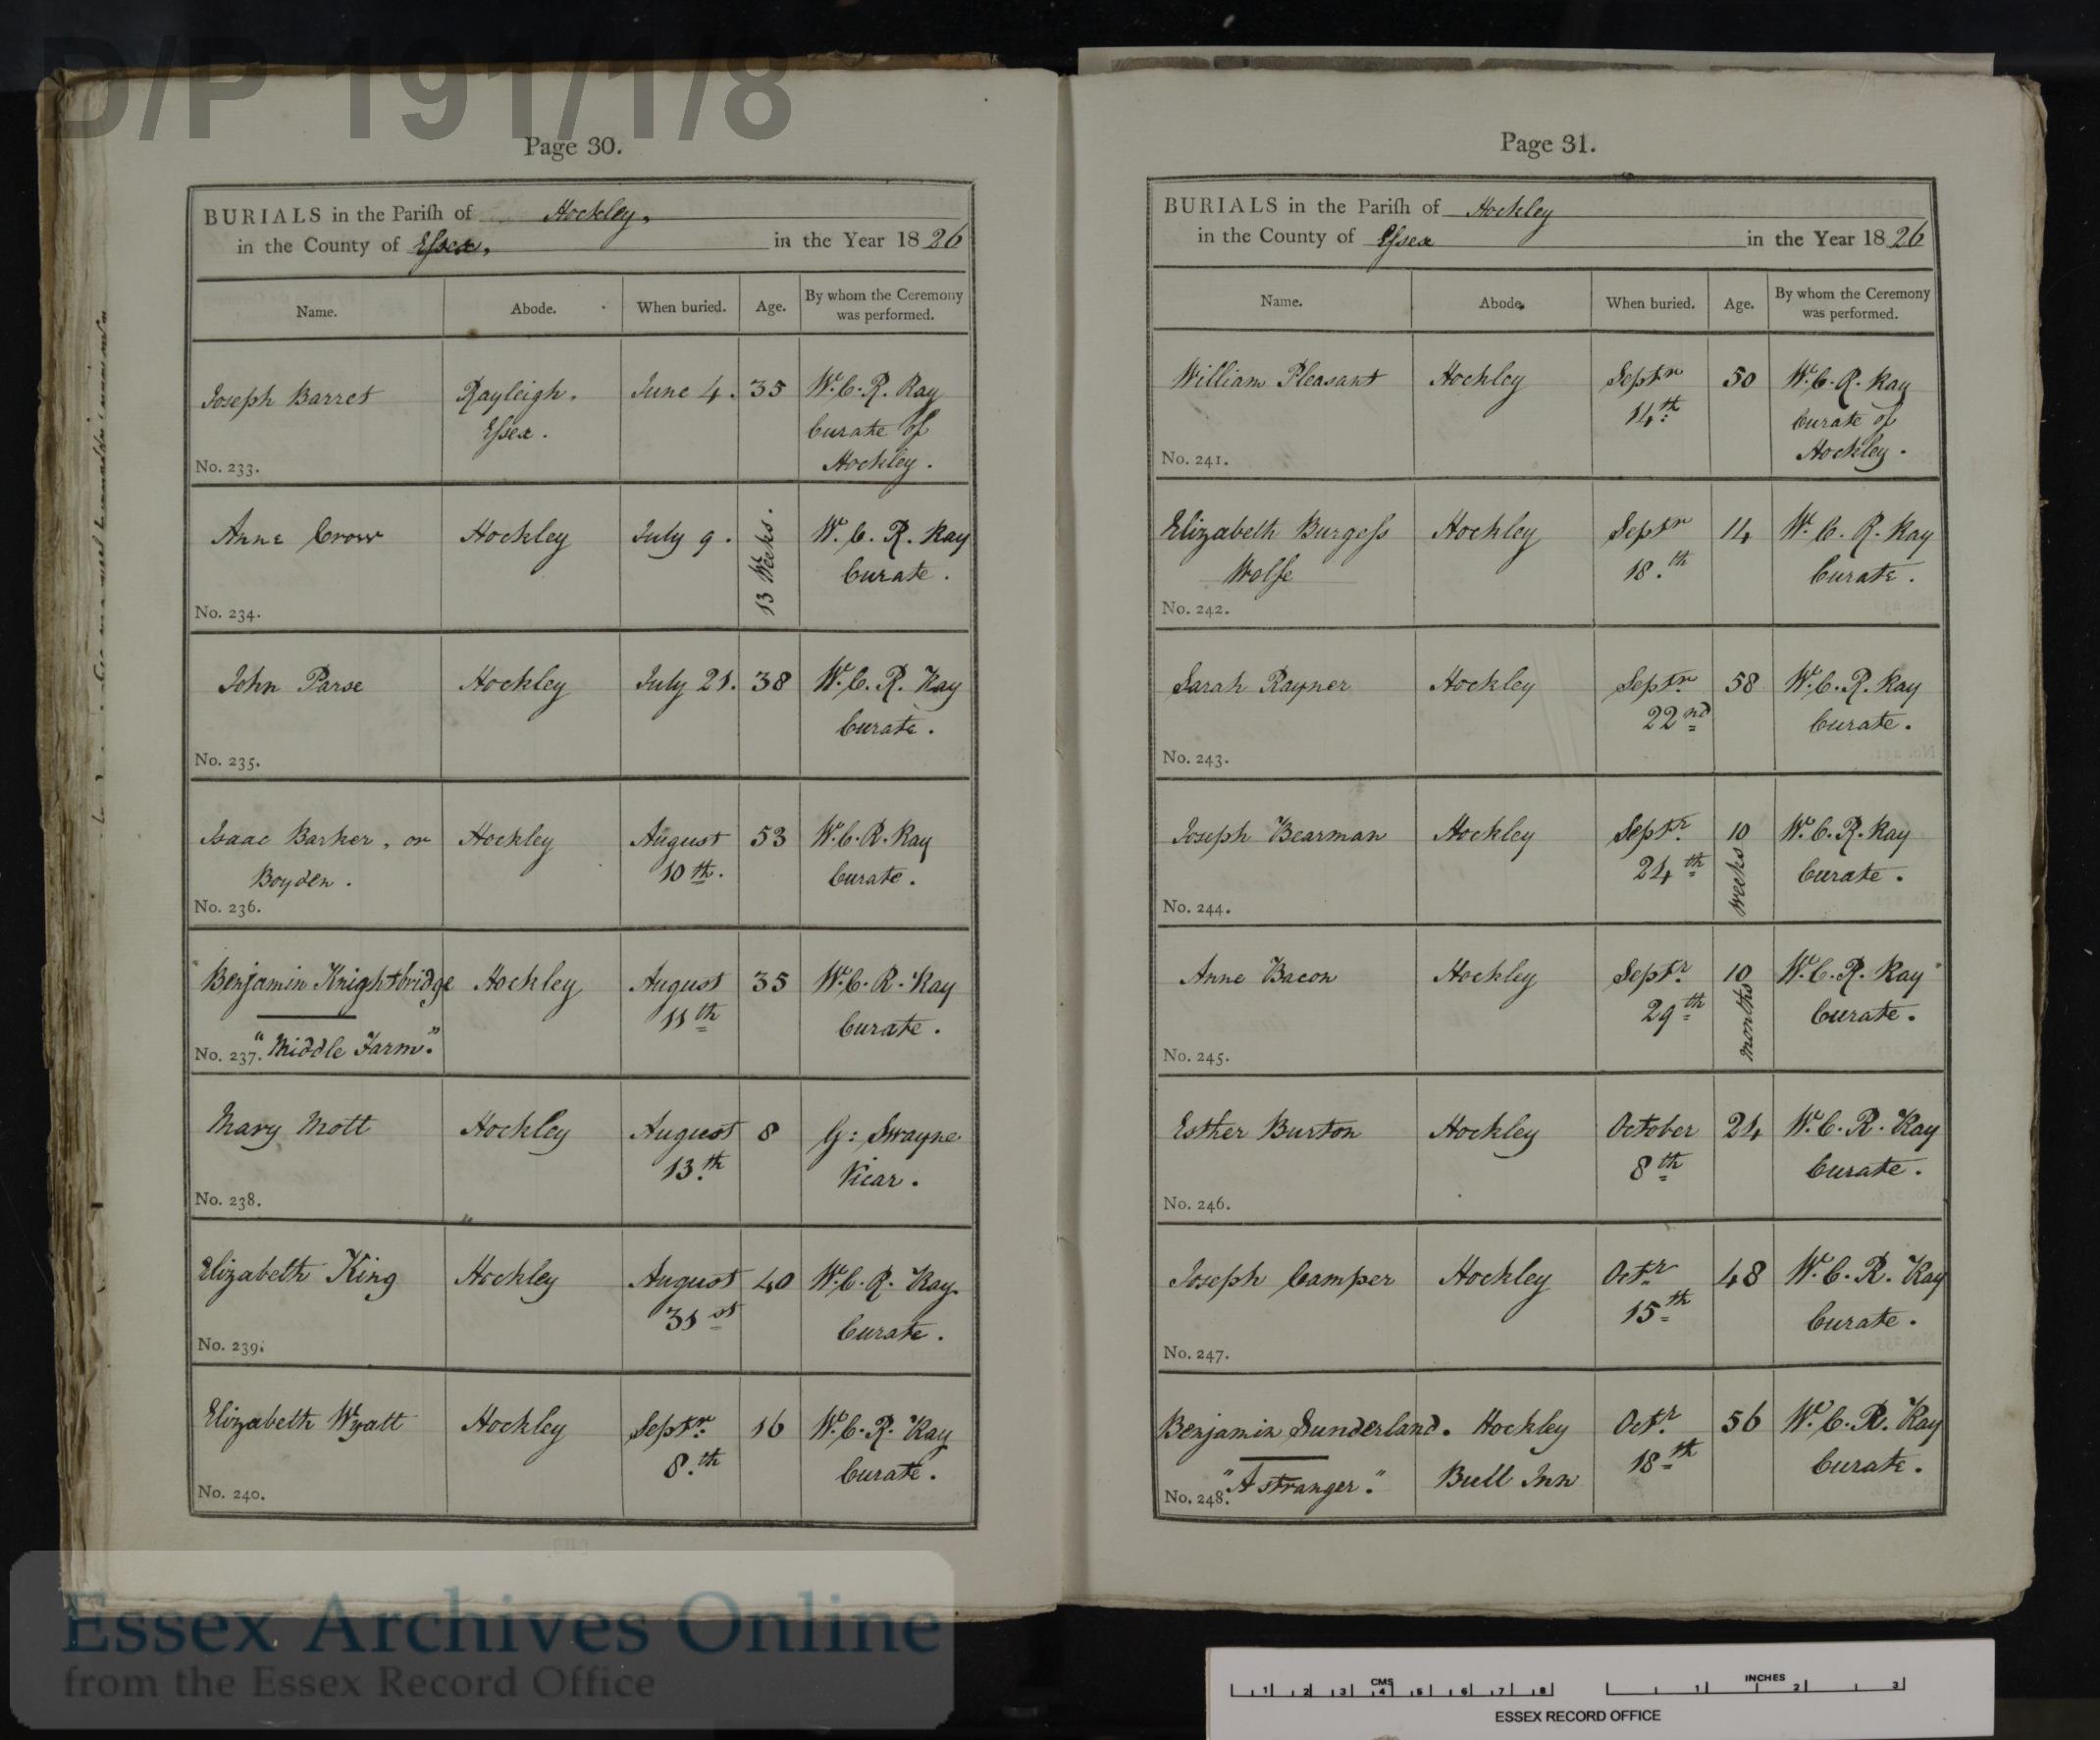 D/P 191/1/8
Page 30.
BURIALS in the Pariſh of Hockley,
in the County of Eſsex, in the Year 1826
Name. Abode. When buried. Age. By whom the Ceremony was performed.
Joseph Barret Rayleigh. June 4. 35 Wm. C. R. Ray
Eſsex. Curate of
No. 233. Hockley.
Anne Crow Hockley July 9. 13 Weeks. Wm. C. R. Ray
Curate.
No. 234.
John Parse Hockley July 21. 38 Wm. C. R. Ray
Curate.
No. 235.
Isaac Barker, or Hockley August 53 Wm. C. R. Ray
Boyden. 10th. Curate.
No. 236.
Benjamin Knightbridge Hockley August 35 Wm. C. R. Ray
11th Curate.
No. 237. "Middle Farm".
Mary Mott Hockley August 8 G: Swayne
13.th Vicar.
No. 238.
Elizabeth King Hockley August 40 Wm. C. R. Ray
31st Curate.
No. 239.
Elizabeth Wyatt Hockley Septr. 16 Wm. C. R. Ray
8.th Curate.
No. 240.
Page 31.
BURIALS in the Pariſh of Hockley
in the County of Eſsex in the Year 1826
Name. Abode. When buried. Age. By whom the Ceremony was performed.
William Pleasant Hockley Septr 50 Wm. C. R. Ray
14th. Curate of
No. 241. Hockley.
Elizabeth Burgeſs Hockley Septr 14 Wm. C. R. Ray
Wolfe 18.th Curate.
No. 242.
Sarah Rayner Hockley Septr. 58 Wm. C. R. Ray
22nd Curate.
No. 243.
Joseph Bearman Hockley Septr. 10 weeks Wm. C. R. Ray
24th Curate.
No. 244.
Anne Bacon Hockley Septr. 10 months Wm. C. R. Ray
29th Curate.
No. 245.
Esther Burton Hockley October 24 Wm. C. R. Ray
8th Curate.
No. 246.
Joseph Camper Hockley Octr. 48 Wm. C. R. Ray
15th Curate.
No. 247.
Benjamin Sunderland. Hockley Octr. 56 Wm. C. R. Ray
18th Curate.
No. 248. "A stranger." Bull Inn
Essex Archives Online
from the Essex Record Office
CMS
1 2 3 4 5 6 7 8
INCHES
1 2 3
ESSEX RECORD OFFICE